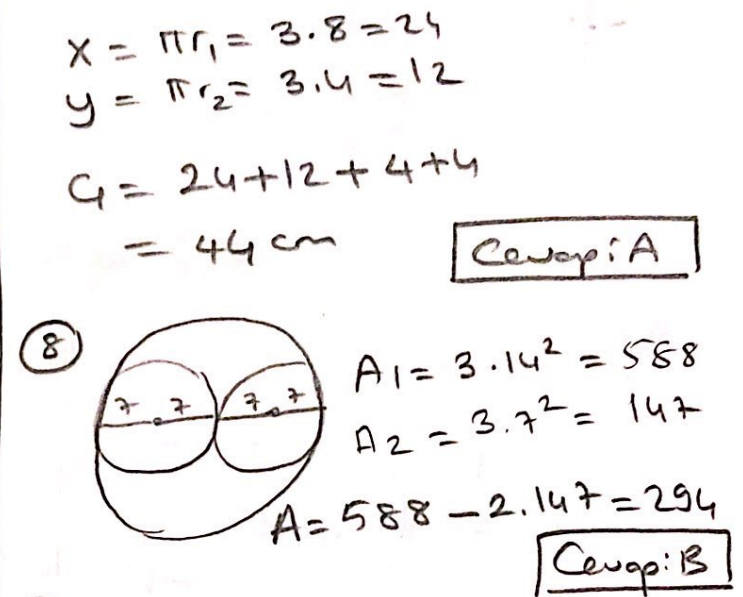 x = πr₁ = 3.8 = 24
y = πr₂ = 3.4 = 12
Ç = 24+12+4+4
= 44 cm
Cevap: A
8
7 7 7 7
A1 = 3.14² = 588
A2 = 3.7² = 147
A = 588 - 2.147 = 294
Cevap: B